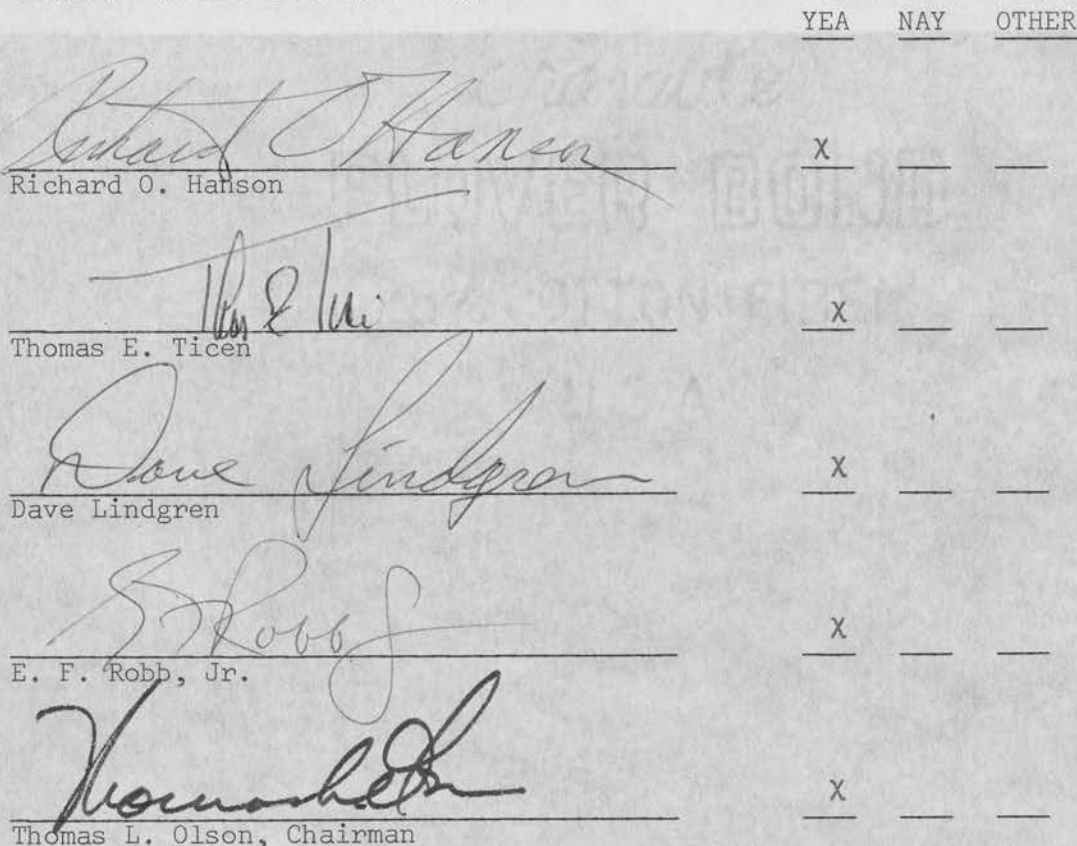 YEA NAY OTHER
Richard O Hanson X
Richard O. Hanson
X
Thomas E. Ticen
Dave Lindgren X
Dave Lindgren
E F Robb Jr X
E. F. Robb, Jr.
Thomas L Olson X
Thomas L. Olson, Chairman